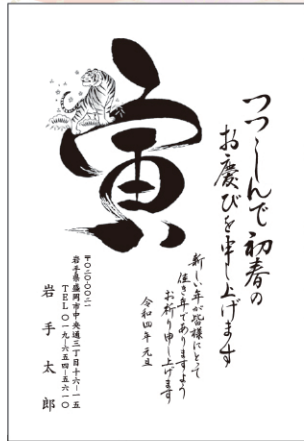 寅
つつしんで初春の
お慶びを申し上げます
新しい年が皆様にとって
佳き年でありますよう
お祈り申し上げます
令和四年 元旦
〒〇二〇-〇〇二一
岩手県盛岡市中央通三丁目十六-一五
TEL〇一九-六五四-五六一〇
岩手太郎